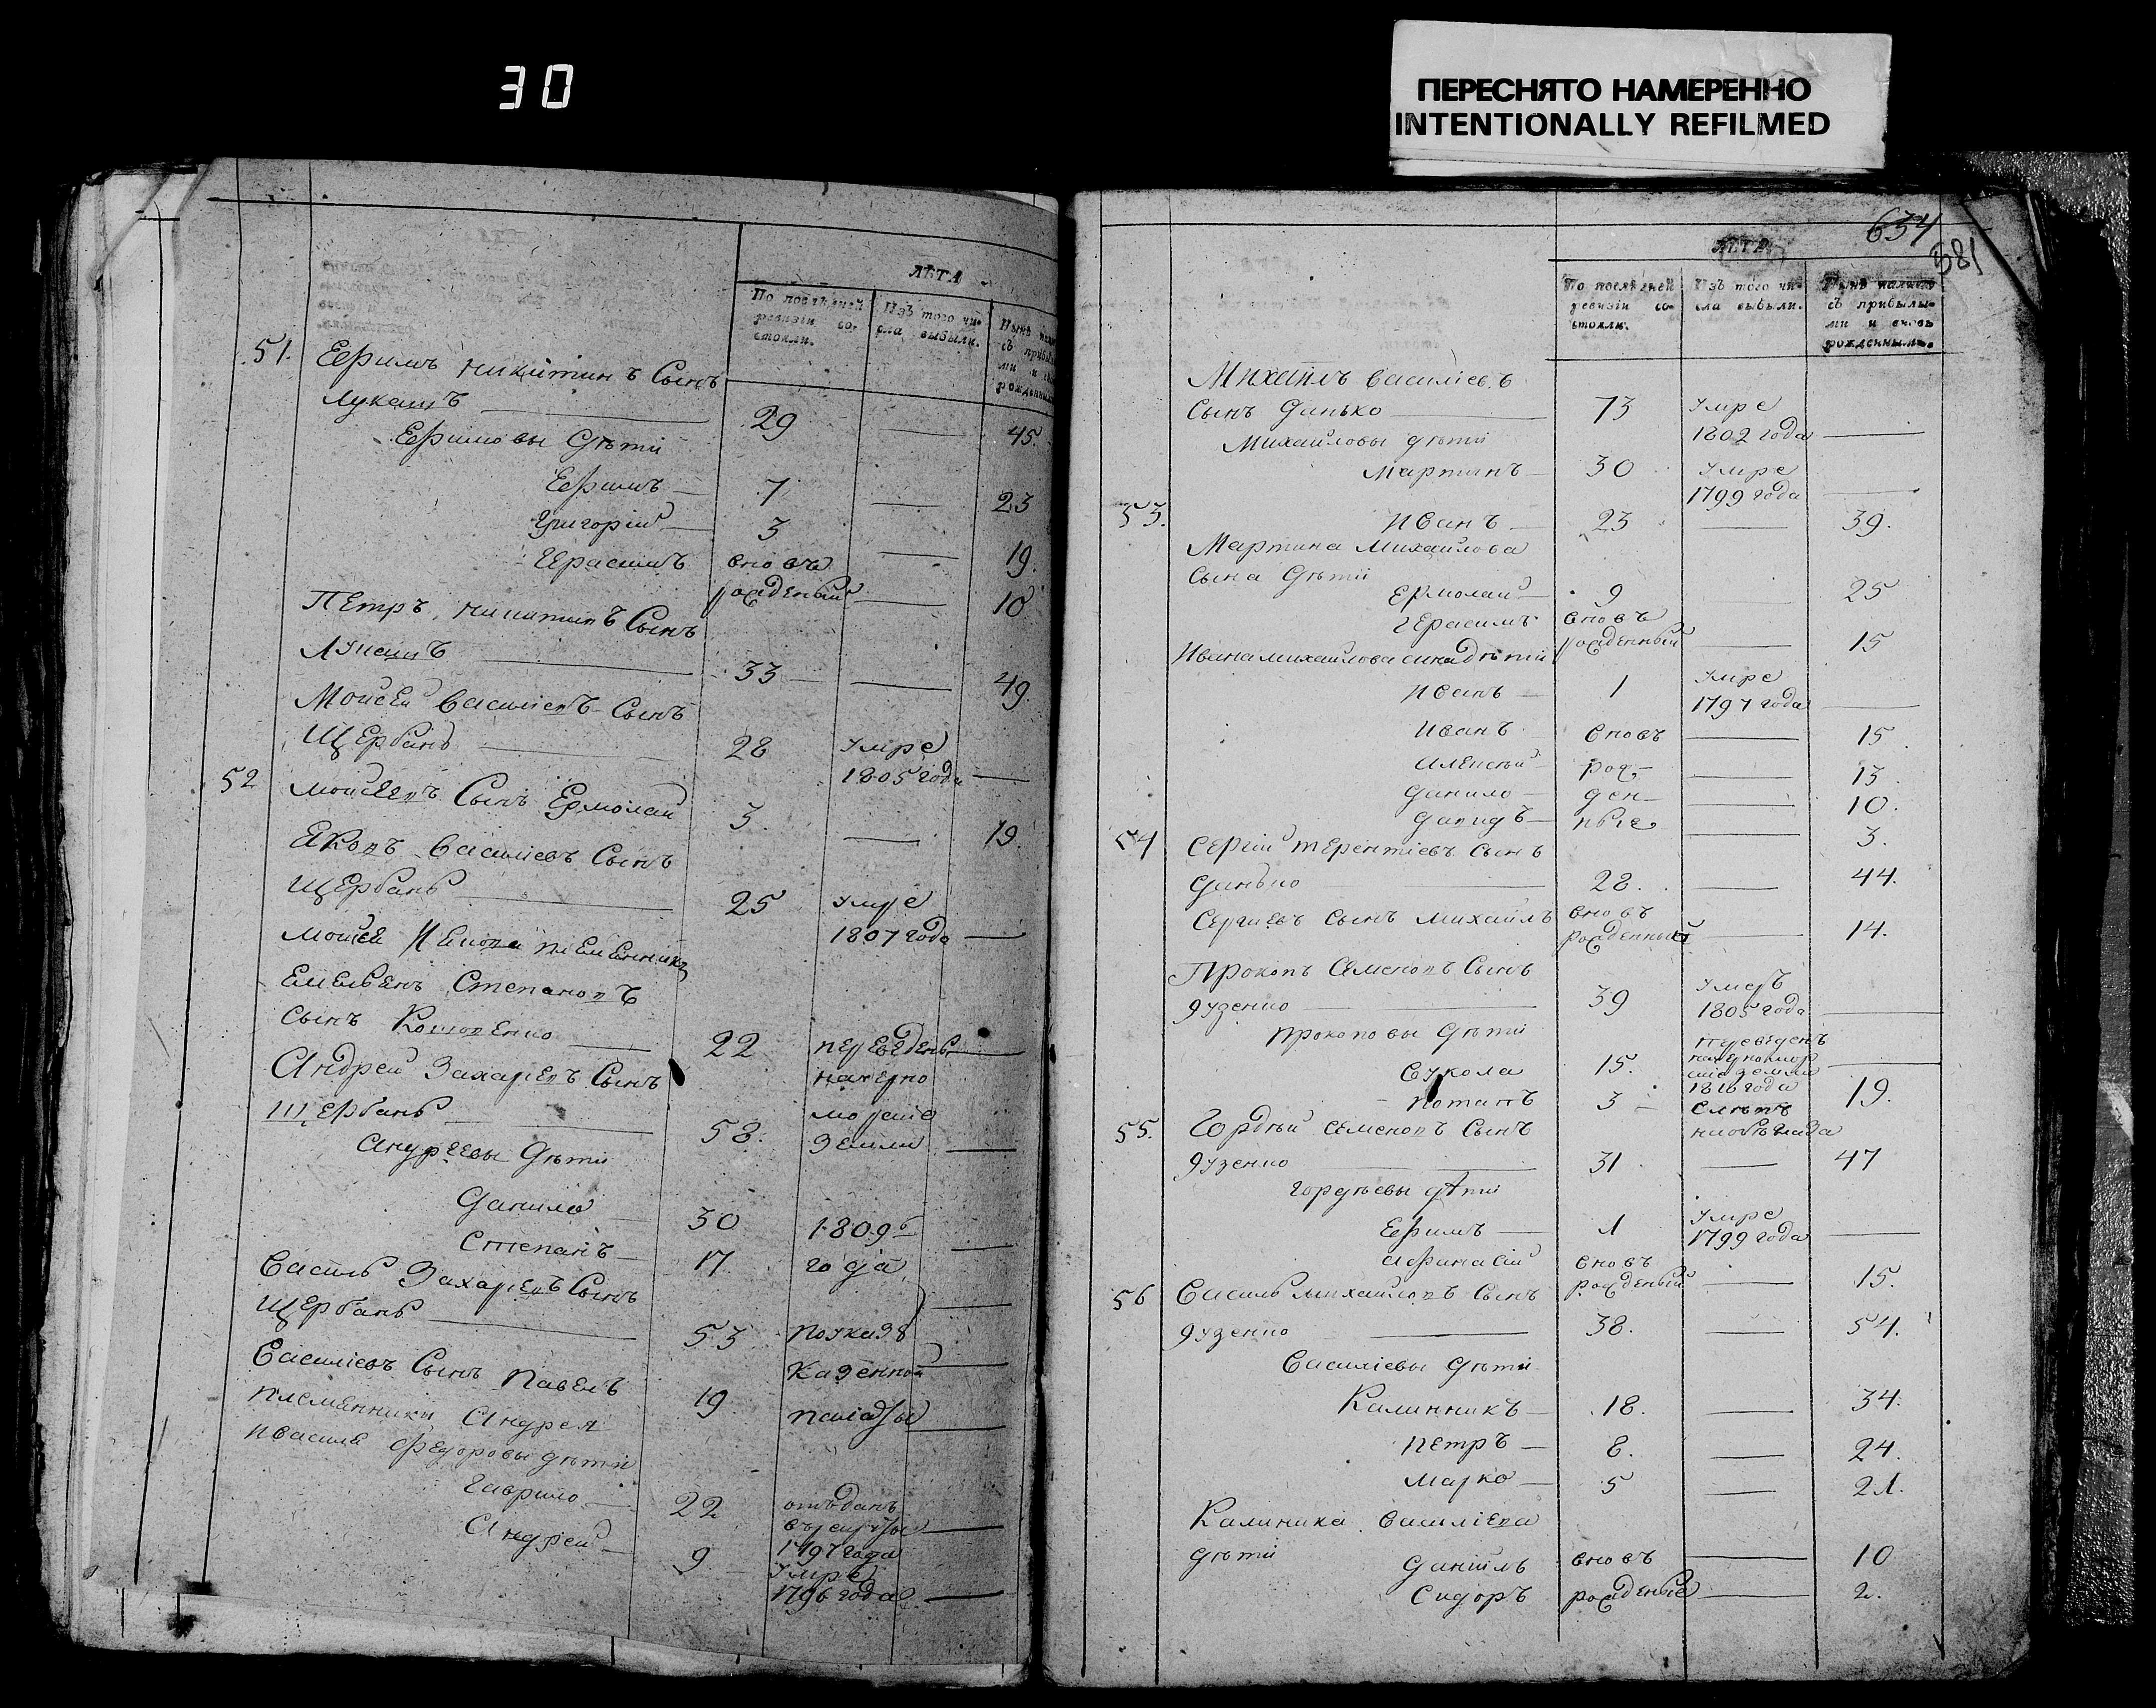 30
ПЕРЕСНЯТО НАМЕРЕННО
INTENTIONALLY REFILMED
ЛѢТА
По послѣдней ревизіи состояли.
Изъ того числа выбыли.
51. Ефримъ никитинъ Сынъ
Лукашъ 29 45.
Ефримовы дѣти
Ефримъ 7 23
Григорій 3 19.
Герасимъ вновь
рожденый 10
Петръ никитинъ Сынъ
Лукашъ 33 49.
Мойсей Василіевъ Сынъ
Щербань 28 Умре
1805 года
52 Мойсеевъ Сынъ Ермолай 3. 19.
Яковъ Василіевъ Сынъ
Щербань 25 Умре
1807 года
Мойсея Якова племенникъ
Емельянъ Степановъ
Сынъ 22 переведенъ
Андрей Захаріевъ Сынъ на черно
Щербань 58. морскіе
Андреевы дѣти земли
Данило 30 1809
Степанъ 17. года
Василь Захаріевъ Сынъ
Щербань 53 по указѣ
Василіевъ Сынъ Павелъ 19. казенной
племянники Андрея палаты
и Василя Федоровы дѣти
Гаврило 22 отъданъ
въ рекруты
1797 года
Андрей 9 Умре
1796 года
634
581
ЛѢТА
По послѣдней ревизіи состояли.
Изъ того числа выбыли.
Нынѣ на лицо съ прибылыми и вновь рожденными.
Михайлъ Василіевъ
Сынъ Данько 73 Умре
1802 года
Михайловы дѣти
Мартинъ 30 Умре
1799 года
53. Иванъ 23 39.
Мартина Михайлова
Сына дѣти
Ермолай 9 25
Герасимъ вновъ
рожденный 15
Ивана михайлова сина дѣти
Иванъ 1 Умре
1797 года
Иванъ вновъ 15.
Алексѣй рож- 13.
Данило ден- 10.
Давидъ ные 3.
54 Сергій терентіевъ Сынъ
Данько 28. 44.
Сергиевъ Сынъ Михайлъ вновъ
рожденный 14.
Прокопъ Семеновъ Сынъ
Дузенко 39 Умеръ
1805 года
Прокоповы дѣти
Сукола 15. переведенъ
на черномор
скіе земли
1810 года
Потапъ 3 Слѣпъ 19.
55. Гордѣй Семеновъ Сынъ
Дузенко 31 47
Гордѣевы дѣти
Ефримъ 1 Умре
1799 года
Афанасій вновъ
рожденый 15.
56 Василь михайловъ Сынъ
Дузенко 38. 54.
Василіевы дѣти
Калинникъ 18. 34.
Петръ 8. 24.
Марко 5 21.
Калиника Василіева
дѣти Данилъ вновъ 10
Сидоръ рожденые 2.